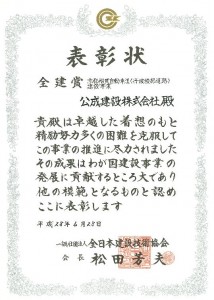 表彰状
全建賞 京都縦貫自動車道(丹波綾部道路)
建設事業
公成建設株式会社殿
貴殿は卓越した着想のもと
精励努力多くの困難を克服して
この事業の推進に尽力されました
その成果はわが国建設事業の
発展に貢献するところ大であり
他の模範となるものと認め
ここに表彰します
平成28年6月28日
一般社団法人 全日本建設技術協会
会長 松田芳夫